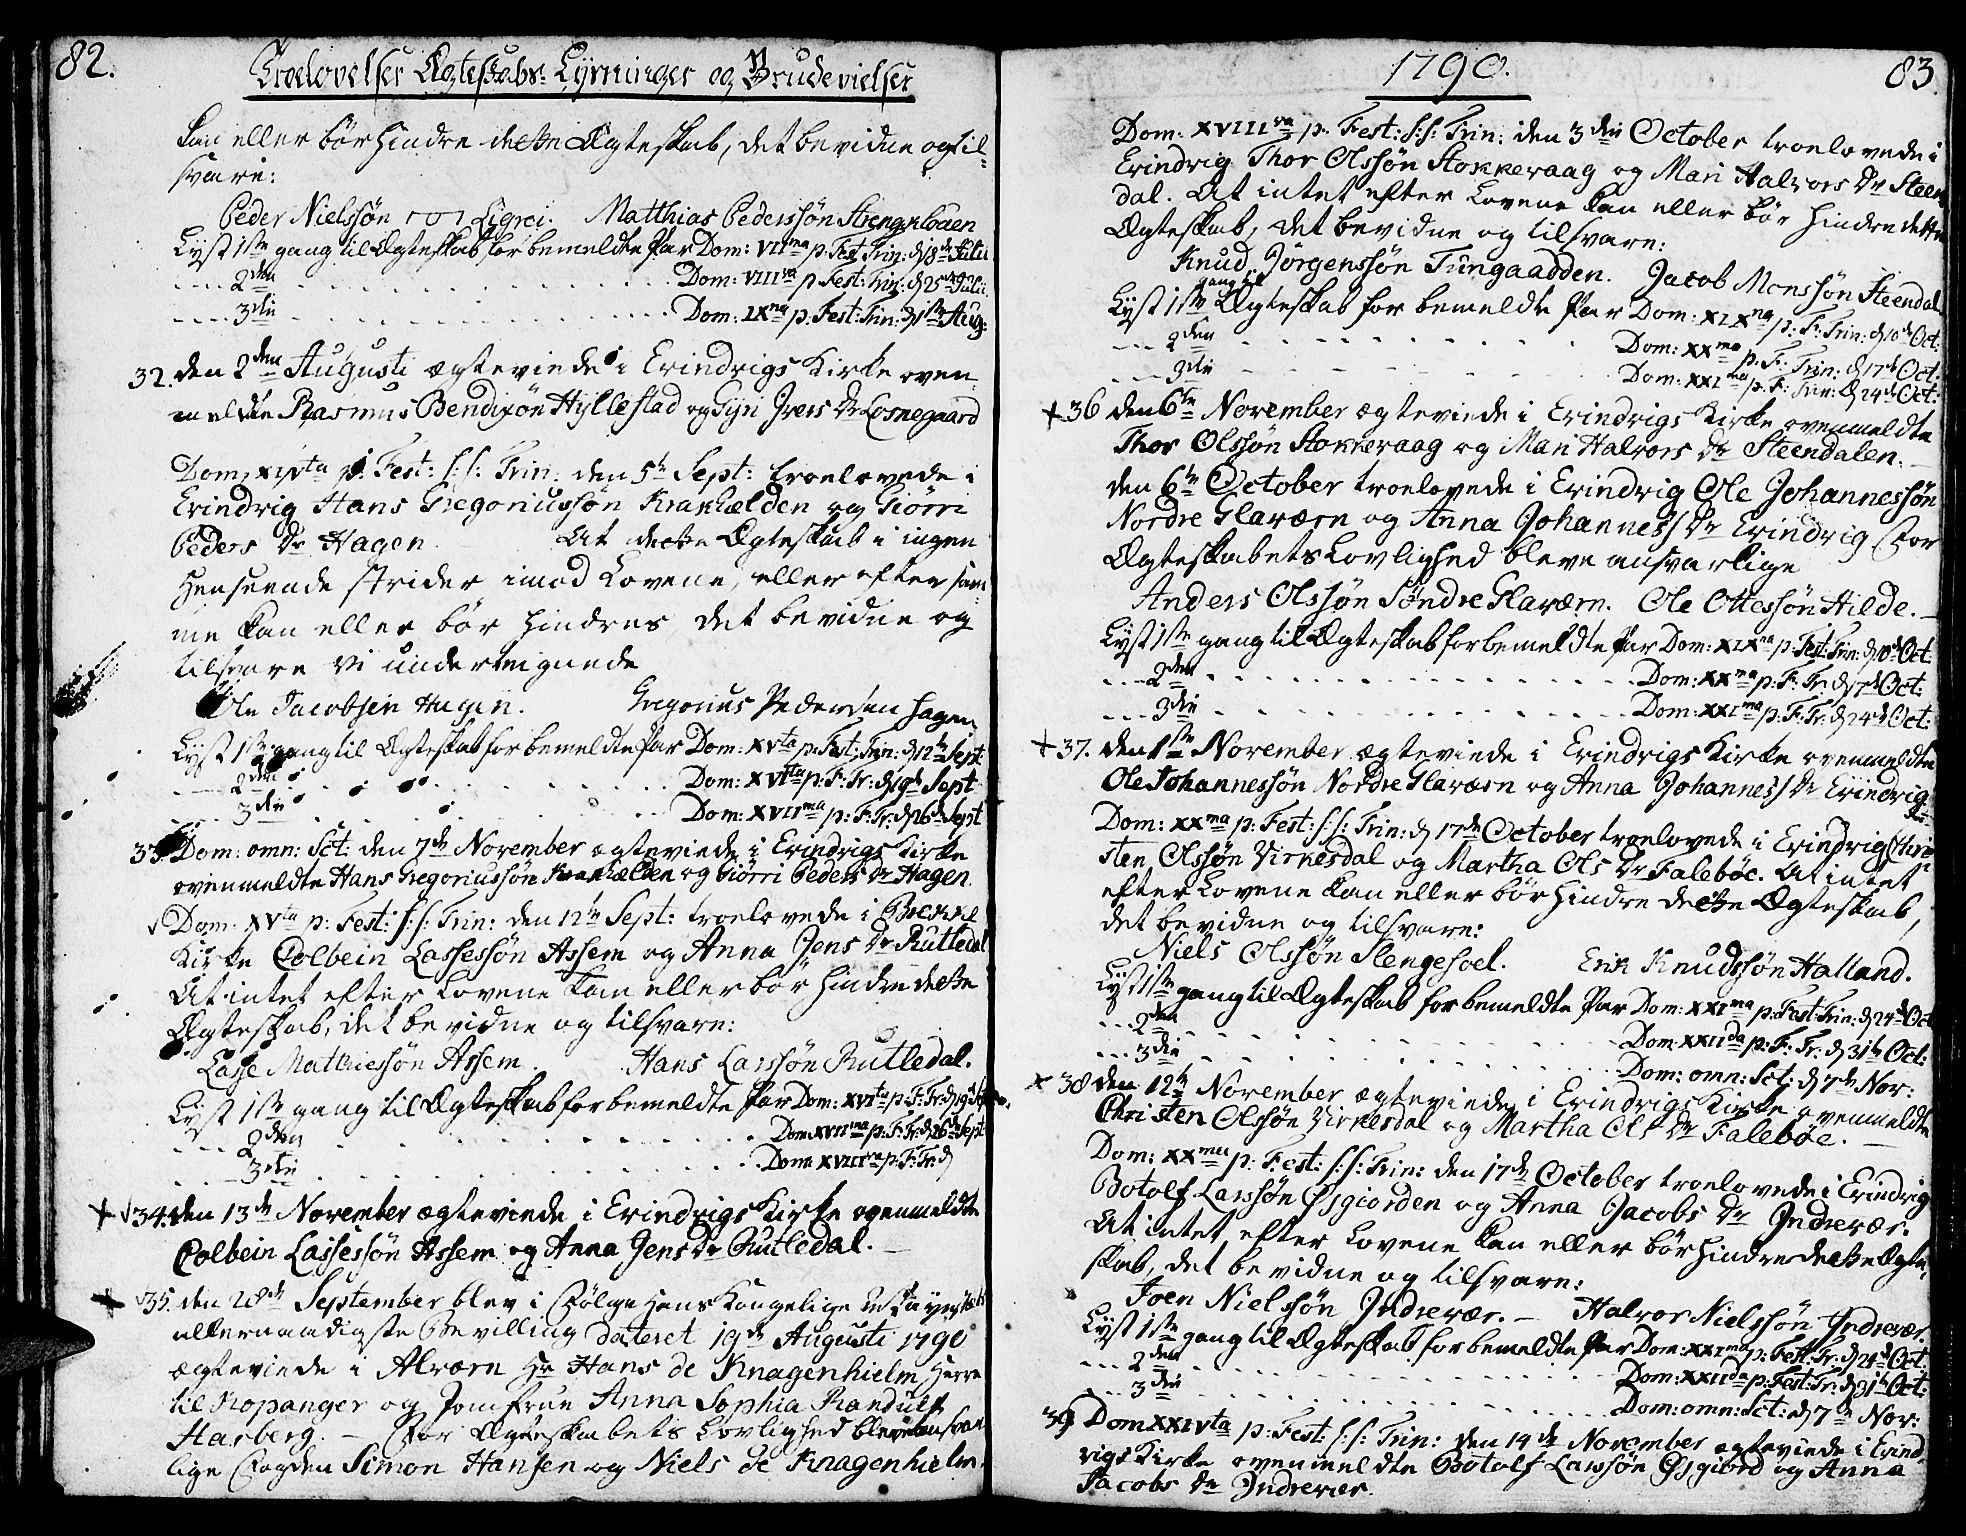 82.
Troelovelser Ægteskabs- Lysninger og Brudevielser
kan eller bör hindre dette Ægteskab, det bevidne og til-
svare:
Peder Nielssön Ligrei. Matthias Pederssön
Lyst 1ste gang til Ægteskab for bemeldte Par Dom: VIIma p: Fest: Trin: d 18de Julii
---- 2den - - - Dom: VIIIva p: Fest: Trin: d 25de Julii
---- 3die - - - Dom: IXna p: Fest: Trin: d 1ste Aug:
32. den 2den Augusti ægteviede i Evindvigs Kirke oven-
meldte Rasmus Bendixön Hyllestad og Gÿri Ivers Dr Losnegaard
Dom: XIVta p: Fest: S: S: Trin: den 5te Sept: troelovede i
Evindvig Hans Gregoriussön Krakhælden og Giörri
Peders Dr Hagen. At dette Ægteskab i ingen
Henseende strider imod Lovene, eller efter sam-
me kan eller bör hindres, det bevidne og
tilsvare vi undertegnede
Ole Jacobsen Hagen. Gregorius Pedersen Hagen
Lyst 1ste gang til Ægteskab for bemeldte Par Dom: XVta p: Fest: Trin: d 12te Sept:
---- 2den - - - Dom: XVIta p: F: Tr: d 19de Sept
---- 3die - - - Dom: XVIIma p: F: Tr: d 26de Sept
33. Dom: omn: Sct: den 7de November ægteviede i Evindvigs Kirke
ovenmeldte Hans Gregoriussön Krakhælden og Giörri Peders Dr Hagen.
Dom: XVta p: Fest: S: S: Trin: den 12te Sept: troelovede i Brekke
Kirke Colbein Lassessön Assem og Anna Jens Dr Rutledal
At intet efter Lovene kan eller bör hindre dette
Ægteskab, det bevidne og tilsvare:
Lasse Matthiessön Assem. Hans Larssön Rutledal.
Lyst 1ste gang til Ægteskab for bemeldte Par Dom: XVIta p: F: Tr: d 19de
---- 2den - - - Dom XVIIma p: F: Tr: d 26de Sept
---- 3die - - - Dom: XVIIIva p: F: Tr: d
34. den 13de November ægteviede i Evindvigs Kirke ovenmeldte
Colbein Lassessön Assem og Anna Jens Dr Rutledal.
35. den 28de September blev i Fölge Hans Kongelige Majestæts
allernaadigste Bevilling dateret 19de Augusti 1790
ægteviede i Alværn Hr Hans de Knagenhielm Herre
til Kopanger og Jomfrue Anna Sophia Randulf
Harberg. - For Ægteskabets Lovlighed bleve ansvar-
lige Fogden Simon Hansen og Niels de Knagenhielm.
1790.
83.
Dom: XVIIIva p: Fest: S: S: Trin: den 3die October troelovede i
Evindvig Thor Olssön Stokkeraag og Mari Halvors Dr Steen-
dal. At intet efter Lovene kan eller bör hindre dette
Ægteskab, det bevidne og tilsvare:
Knud Jörgenssön Tungaadden. Jacob Monssön Steendal
Lyst 1ste gang til Ægteskab for bemeldte Par Dom: XIXna p: F: Trin: d 10de Oct:
---- 2den - - - Dom: XXma p: F: Trin: d 17de Oct:
---- 3die - - - Dom: XXIma p: F: Trin: d 24de Oct:
36 den 6te November ægteviede i Evindvigs Kirke ovenmeldte
Thor Olssön Stokkeraag og Mari Halvors Dr Steendalen.
den 6te October troelovede i Evindvig Ole Johannessön
Nordre Glaværn og Anna Johannes Dr Evindvig. For
Ægteskabets Lovlighed bleve ansvarlige
Anders Olssön Söndre Glaværn. Ole Ottessön Hilde.
Lyst 1ste gang til Ægteskab for bemeldte Par Dom: XIXna p: Fest: Trin: d 10de Oct:
---- 2den - - - Dom: XXma p: F: Tr: d 17de Oct:
---- 3die - - - Dom: XXIma p: F: Tr: d 24de Oct:
37. den 1ste November ægteviede i Evindvigs Kirke ovenmeldte
Ole Johannessön Nordre Glaværn og Anna Johannes Dr Evindvig
Dom: XXma p: Fest: S: S: Trin: d 17de October troelovede i Evindvig Chri-
sten Olssön Virkesdal og Martha Ols Dr Faleböe. At intet
efter Lovene kan eller bör hindre dette Ægteskab,
det bevidne og tilsvare:
Niels Olssön Slengesoel. Erik Knudssön Halland.
Lyst 1ste gang til Ægteskab for bemeldte Par Dom: XXIma p: Fest: Trin: d 24de Oct
---- 2den - - - Dom: XXIIda p: F: Tr: d 31te Oct:
---- 3die - - - Dom: omn: Sct: d 7de Nov:
38 den 12te November ægteviede i Evindvigs Kirke ovenmeldte
Christen Olssön Virkesdal og Martha Ols Dr Faleböe.
Dom: XXma p: Fest: S: S: Trin: den 17de October troelovede i Evindvig
Botolf Larssön Öjgiorden og Anna Jacobs Dr Indrevær.
At intet efter Lovene kan eller bör hindre dette Ægte-
skab, det bevidne og tilsvare:
Joen Nielssön Indrevær. - Halvor Nielssön Indrevær.
Lyst 1ste gang til Ægteskab for bemeldte Par Dom: XXIma p: Fest: Tr: d 24de Oct:
---- 2den - - - Dom: XXIIda p: Fest: Tr: d 31te Oct:
---- 3die - - - Dom: omn: Sct: d 7de Nov:
39 Dom XXIVta p: Fest: S: S: Trin: den 14de November ægteviede i Evind-
vigs Kirke ovenmeldte Botolf Larssön Öjgiord og Anna
Jacobs Dr Indrevær.